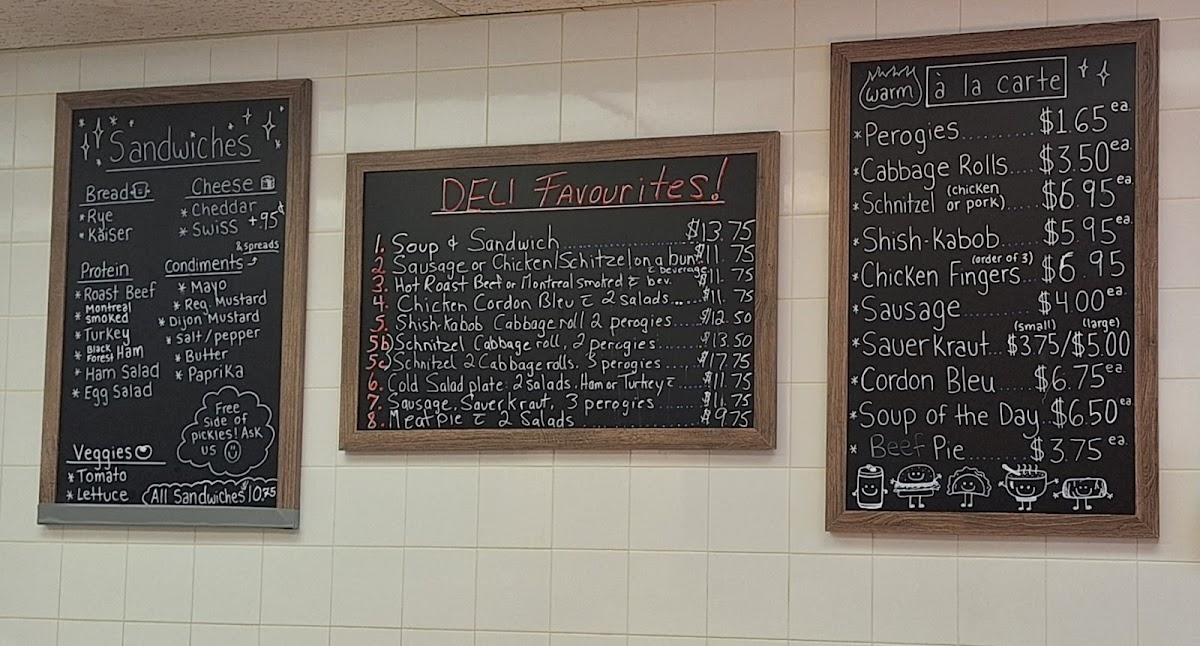 Sandwiches
Bread
* Rye
* Kaiser
Cheese
* Cheddar
* Swiss +.95¢
Protein
* Roast Beef
* Montreal smoked
* Turkey
* Black Forest Ham
* Ham Salad
* Egg Salad
Condiments & spreads
* Mayo
* Reg. Mustard
* Dijon Mustard
* salt/pepper
* Butter
* Paprika
Free
side of
pickles! Ask
us
Veggies
* Tomato
* Lettuce
All Sandwiches $10.75
DELI FAVOURITES!
1. Soup & Sandwich........ $13.75
2. Sausage or Chicken/Schitzel on a bun $11.75
c beverage
3. Hot Roast Beef or Montreal smoked c bev. $11.75
4. Chicken Cordon Bleu c 2 Salads.... $11.75
5. Shish-kabob Cabbage roll 2 perogies..... $12.50
5b) Schnitzel Cabbage roll, 2 perogies....... $13.50
5c) Schnitzel 2 Cabbage rolls, 3 perogies..... $17.75
6. Cold Salad plate: 2 Salads, Ham or Turkey c .. $11.75
7. Sausage, Sauerkraut, 3 perogies...... $11.75
8. Meat Pie c 2 Salads........ $9.75
warm à la carte
* Perogies.......... $1.65 ea.
* Cabbage Rolls... $3.50 ea.
* Schnitzel (chicken or pork).... $6.95 ea.
* Shish-Kabob.... $5.95 ea.
* Chicken Fingers (order of 3).. $6.95
* Sausage........ $4.00 ea.
* Sauerkraut... (small) $3.75/(large) $5.00
* Cordon Bleu ... $6.75 ea.
* Soup of the Day.. $6.50 ea.
* Beef Pie ....... $3.75 ea.